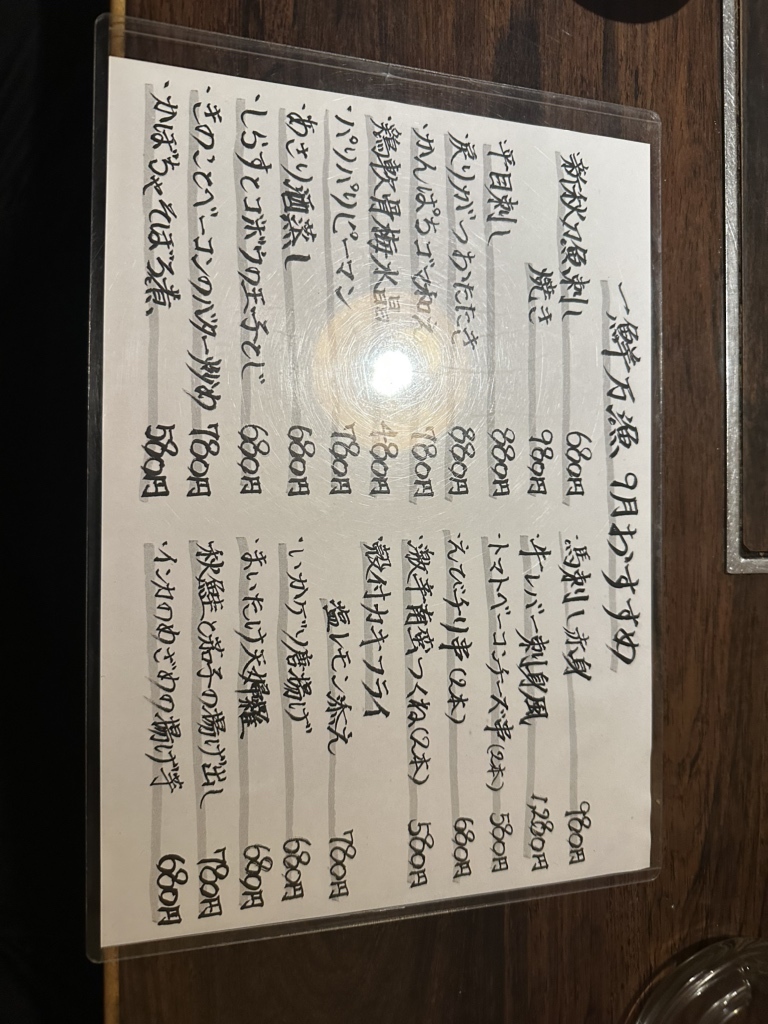 一鮮万漁 9月おすすめ
・新秋刀魚刺し 680円
焼き 980円
・平目刺し 880円
・戻りがつおたたき 880円
・かんぱちゴマ和え 780円
・鶏軟骨梅水晶 480円
・パリパリピーマン 780円
・あさり酒蒸し 680円
・しらすとゴボウの玉子とじ 680円
・きのことベーコンのバター炒め 780円
・かぼちゃそぼろ煮 580円
・馬刺し赤身 980円
・牛レバー刺身風 1,280円
・トマトベーコンチーズ串(2本) 580円
・えびチリ串(2本) 680円
・激辛南蛮つくね(2本) 580円
・殻付カキフライ
塩レモン添え 780円
・いかゲソ唐揚げ 680円
・まいたけ天婦羅 680円
・秋鮭と茄子の揚げ出し 780円
・インカのめざめの揚げ芋 680円